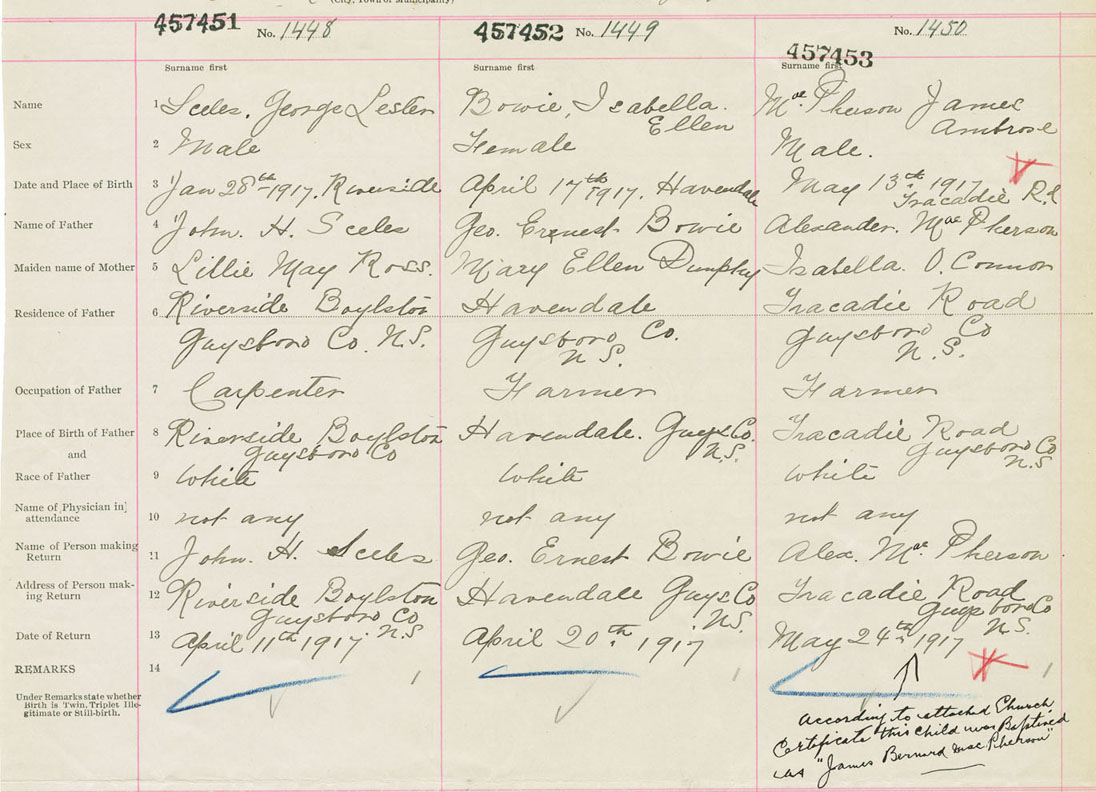 (City, Town or Municipality)
457451 No. 1448 457452 No. 1449 457453 No. 1450
Surname first Surname first Surname first
Name 1 Sceles, George Lester Bowie, Isabella Ellen McPherson James Ambrose
Sex 2 Male Female Male.
Date and Place of Birth 3 Jan 28th 1917. Riverside April 17th 1917. Havendale May 13th 1917 Tracadie Rd
Name of Father 4 John. H. Sceles Geo. Ernest Bowie Alexander. McPherson
Maiden name of Mother 5 Lillie May Ross. Mary Ellen Dunphy Isabella. O. Connor
Residence of Father 6 Riverside Boylston Havendale Tracadie Road
Guysboro Co. N.S. Guysboro Co. N S. Guysboro Co N. S.
Occupation of Father 7 Carpenter Farmer Farmer
Place of Birth of Father 8 Riverside Boylston Guysboro Co Havendale. Guys Co. N.S. Tracadie Road Guysboro Co N.S
and
Race of Father 9 White White White
Name of Physician in attendance 10 not any not any not any
Name of Person making Return 11 John. H. Sceles Geo. Ernest Bowie Alex. McPherson
Address of Person making Return 12 Riverside Boylston Guysboro Co N.S Havendale Guys Co N.S. Tracadie Road Guysboro Co N.S.
Date of Return 13 April 11th 1917. April 20th. 1917 May 24th. 1917
REMARKS 14 1 1 1
Under Remarks state whether
Birth is Twin, Triplet Ille-
gitimate or Still-birth.
According to attached Church
Certificate this child was Baptized
as "James Bernard MacPherson"